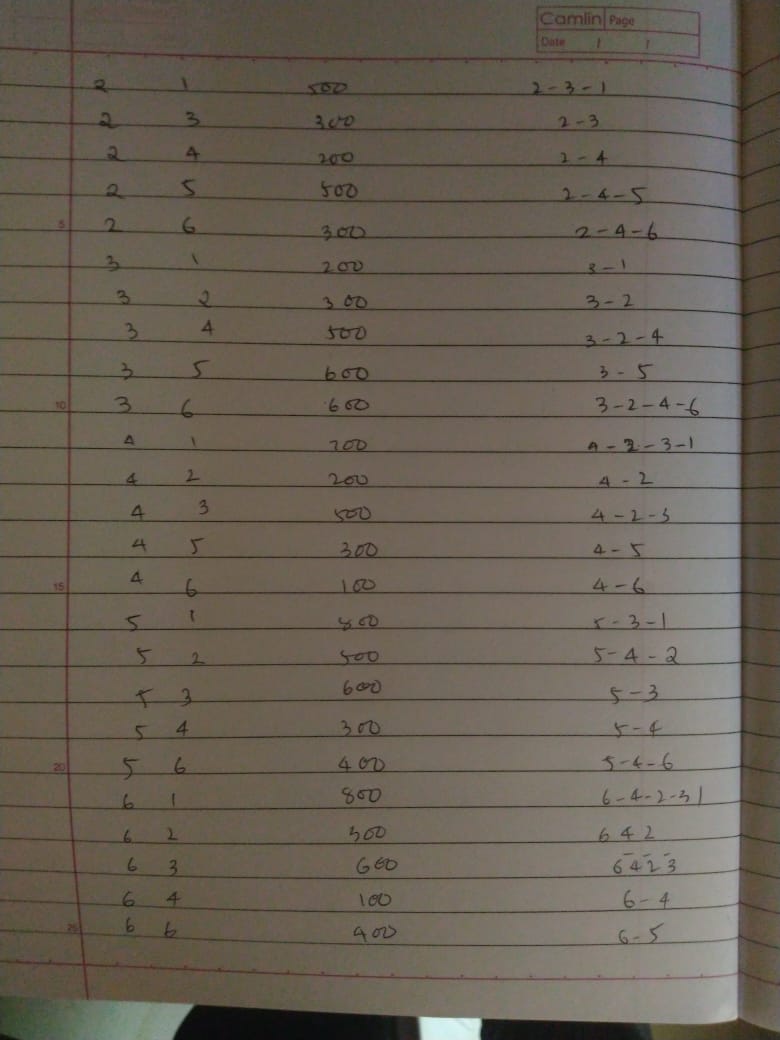 Camlin Page
Date / /
2 1 500 2-3-1
2 3 300 2-3
2 4 200 2-4
2 5 500 2-4-5
5 2 6 300 2-4-6
3 1 200 3-1
3 2 300 3-2
3 4 500 3-2-4
3 5 600 3-5
10 3 6 600 3-2-4-6
4 1 700 4-2-3-1
4 2 200 4-2
4 3 500 4-2-3
4 5 300 4-5
15 4 6 100 4-6
5 1 800 5-3-1
5 2 500 5-4-2
5 3 600 5-3
5 4 300 5-4
20 5 6 400 5-4-6
6 1 800 6-4-2-31
6 2 300 6 4 2
6 3 600 6-4-2-3
6 4 100 6-4
25 6 6 400 6-5